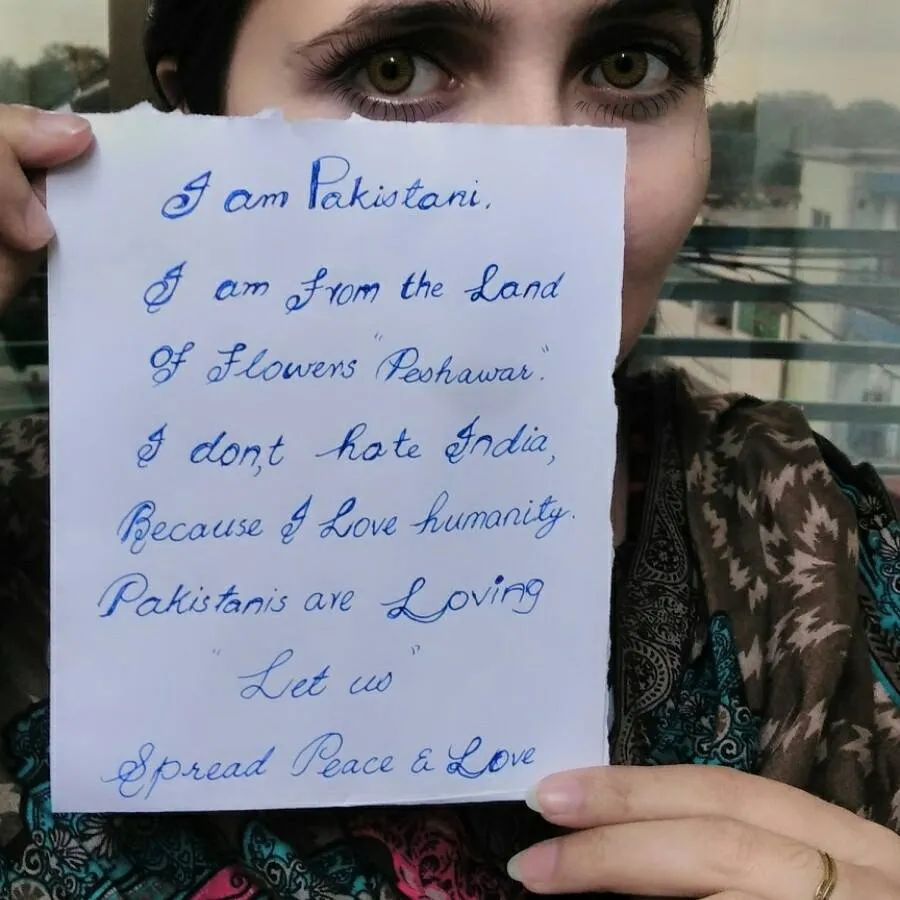 I am Pakistani.
I am From the Land
Of Flowers "Peshawar".
I don,t hate India,
Because I Love humanity.
Pakistanis are Loving
"Let us"
Spread Peace & Love